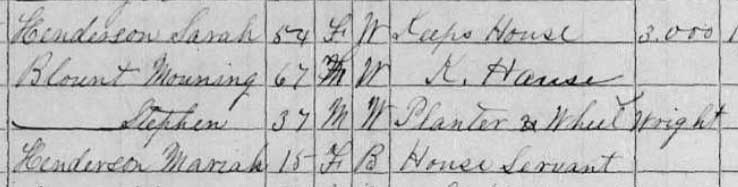 Henderson Sarah 54 F W Keeps House 3.000 1
Blount Mourning 67 M W K. House
—— Stephen 37 M W Planter & Wheel Wright
Henderson Mariah 15 F B House Servant